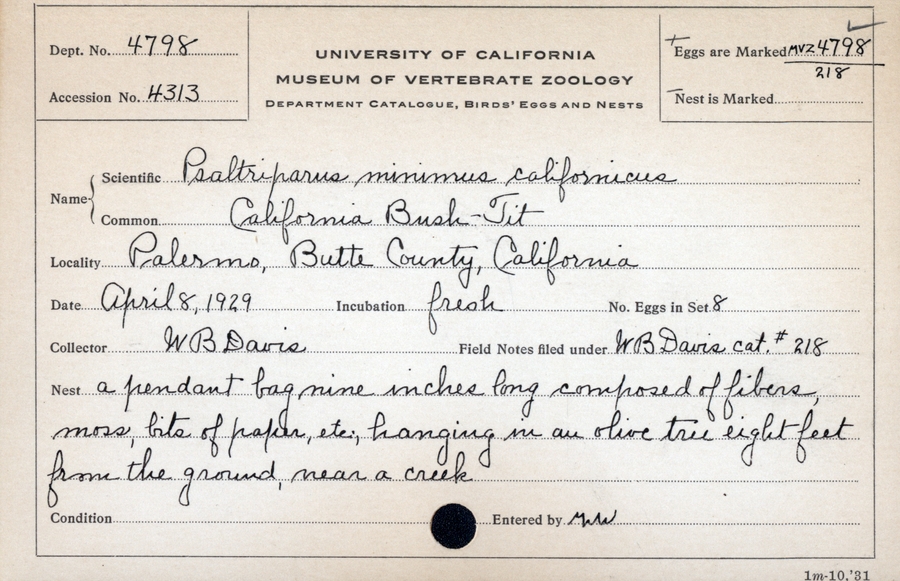 Dept. No. 4798
Accession No. 4313
UNIVERSITY OF CALIFORNIA
MUSEUM OF VERTEBRATE ZOOLOGY
DEPARTMENT CATALOGUE, BIRDS' EGGS AND NESTS
Eggs are Marked MVZ 4798
218
Nest is Marked
Name
Scientific Psaltriparus minimus californicus
Common California Bush-Tit
Locality Palermo, Butte County, California
Date April 8, 1929 Incubation fresh No. Eggs in Set 8
Collector W B Davis Field Notes filed under W B Davis cat. # 218
Nest a pendant bag nine inches long composed of fibers,
moss, bits of paper, etc., hanging in an olive tree eight feet
from the ground, near a creek
Condition Entered by
1m-10,'31